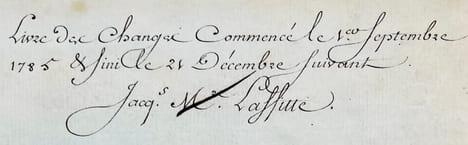 Livre des Changes Commencé le 1.er Septembre
1785 & fini le 21 Décembre suivant
Jacq.s M.r Laffitte